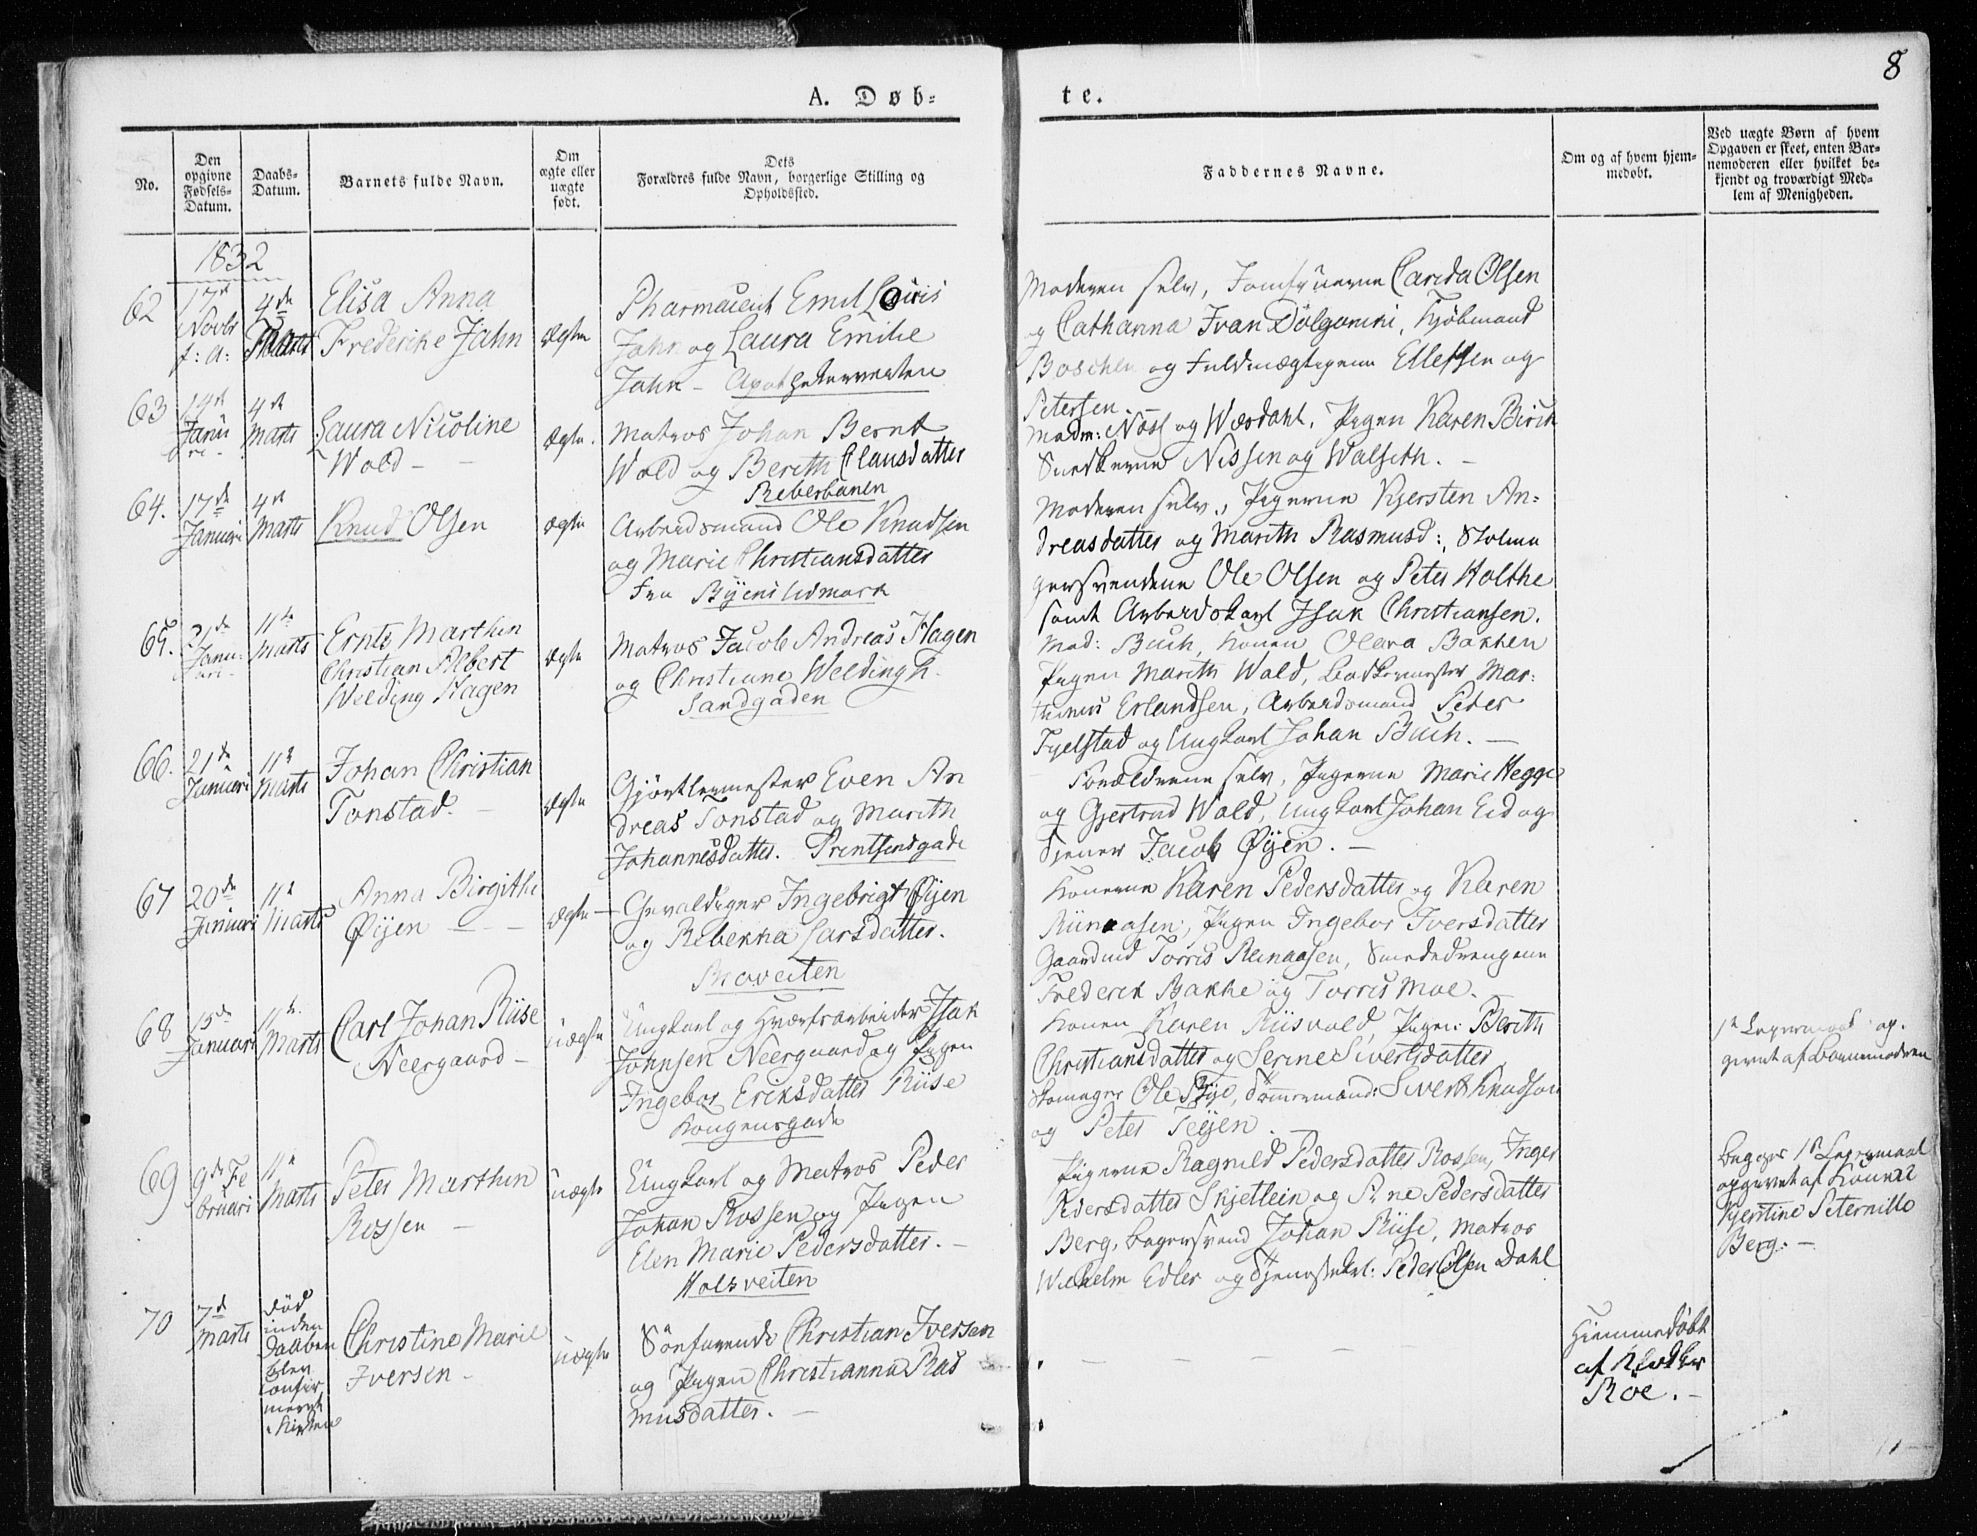 8
A. Døb-
te.
No.
Den opgivne Fødsels-Datum.
Daabs-Datum.
Barnets fulde Navn.
Om ægte eller uægte født.
Dets Forældres fulde Navn, borgerlige Stilling og Opholdssted.
Faddernes Navne.
Om og af hvem hjemmedøbt.
Ved uægte Børn af hvem Opgaven er skeet, enten Barnemoderen eller hvilket bekjendt og troværdigt Medlem af Menigheden.
1832
62
17de Novbr f: A:
4de Marts
Elisa Anna
Frederikke Jahn
Ægte
Pharmaceut Emil Louis
Jahn og Laura Emilie
Jahn - Apothekerveiten
Moderen selv, Jomfruerne Carida Olsen
og Cathanna Ivan Dolgomini, Kjøbmand
Boschen og Fuldmægtigene Ellefsen og
Petersen.
63
14de Januari
4de Marts
Laura Nicoline
Wold -
Ægte.
Matros Johan Bernt
Wold og Berith Clausdatter
Reberbanen
Madm: Næss og Wærdahl, Pigen Karen Birch
Snedkerne Nissen og Walseth. -
64.
17de Januari
4de Marts
Knud Olsen
Ægte
Arbeidsmand Ole Knudsen
og Marie Christiansdatter
fra Byens Udmark
Moderen selv, Pigerne Kjersten An-
dreasdatter og Marith Rasmusd:, Stolma
gersvendene Ole Olsen og Peter Holthe
samt Arbeidskarl Isak Christiansen.
65.
21de Januari
11te Marts
Ernts Marthin
Christian Albert
Welding Hagen
Ægte
Matros Jacob Andreas Hagen
og Christiane Weldingh.
Sandgaden
Mad: Buch, Konen Olava Bakken
Pigen Marith Wald, Bødkermester Mar-
thinus Erlandsen, Arbeidsmand Peter
Fjelstad og Ungkarl Johan Buch. -
66.
21de Januari
11te Marts
Johan Christian
Tonstad. -
Ægte
Gjørtlermester Even An
dreas Tonstad og Marith
Johannesdatter. Printsensgade
Forældrene selv, Pigerne Marie Hegge
og Gjertrud Wold, Ungkarl Johan Eid og
Tjener Jacob Øyen. -
67
20de Januari
11te Marts
Anna Birgithe
Øyen - -
Ægte -
Gevaldiger Ingebrigt Øyen
og Rebekka Larsdatter.
Moveiten
Konerne Karen Pedersdatter og Karen
Rünaasen, Pigen Ingebor Iversdatter
Gaardmd Torris Renaasen, Smededrengene
Frederik Bakke og Torris Moe.
68
15de Januari
11te Marts
Carl Johan Riise
Neergaard -
uægte
Ungkarl og Hverfsarbeider Isak
Johnsen Neergaard og Pigen
Ingebor Eriksdatter Riise
Kongensgade
Konen Karen Riisvold, Pigen: Berith
Christiansdatter og Serine Sivertsdatter
Skomager Ole Bye, Tømmermænd: Sivert Knudson
og Peter Teijen.
1ste Leiermaal op-
givet af Barnemoderen
69
9de Februari
11te Marts
Peter Marthin
Rossen -
uægte
Ungkarl og Matros Peder
Johan Rossen og Pigen
Elen Marie Pedersdatter. -
Holsveiten
Pigerne Ragnild Pedersdatter Rossen, Inger
Pedersdatter Skjetlein og Sine Pedersdatter
Berg, Bagersvend Johan Riise, Matros
Wilhelm Edler og Tjenestekarl: Peder Olsen Dahl
Begges 1ste Leiermaal
opgivet af Konen
Kjerstine Peternille
Berg. -
70
7de Marts
Død inden Daaben blev confirmeret i Kirken
Christine Marie
Iversen -
uægte
Sønfarende Christian Iversen
og Pigen Christianna Ras
musdatter. -
- - - -
Hiemmedøbt
af Klokker
Röe. -